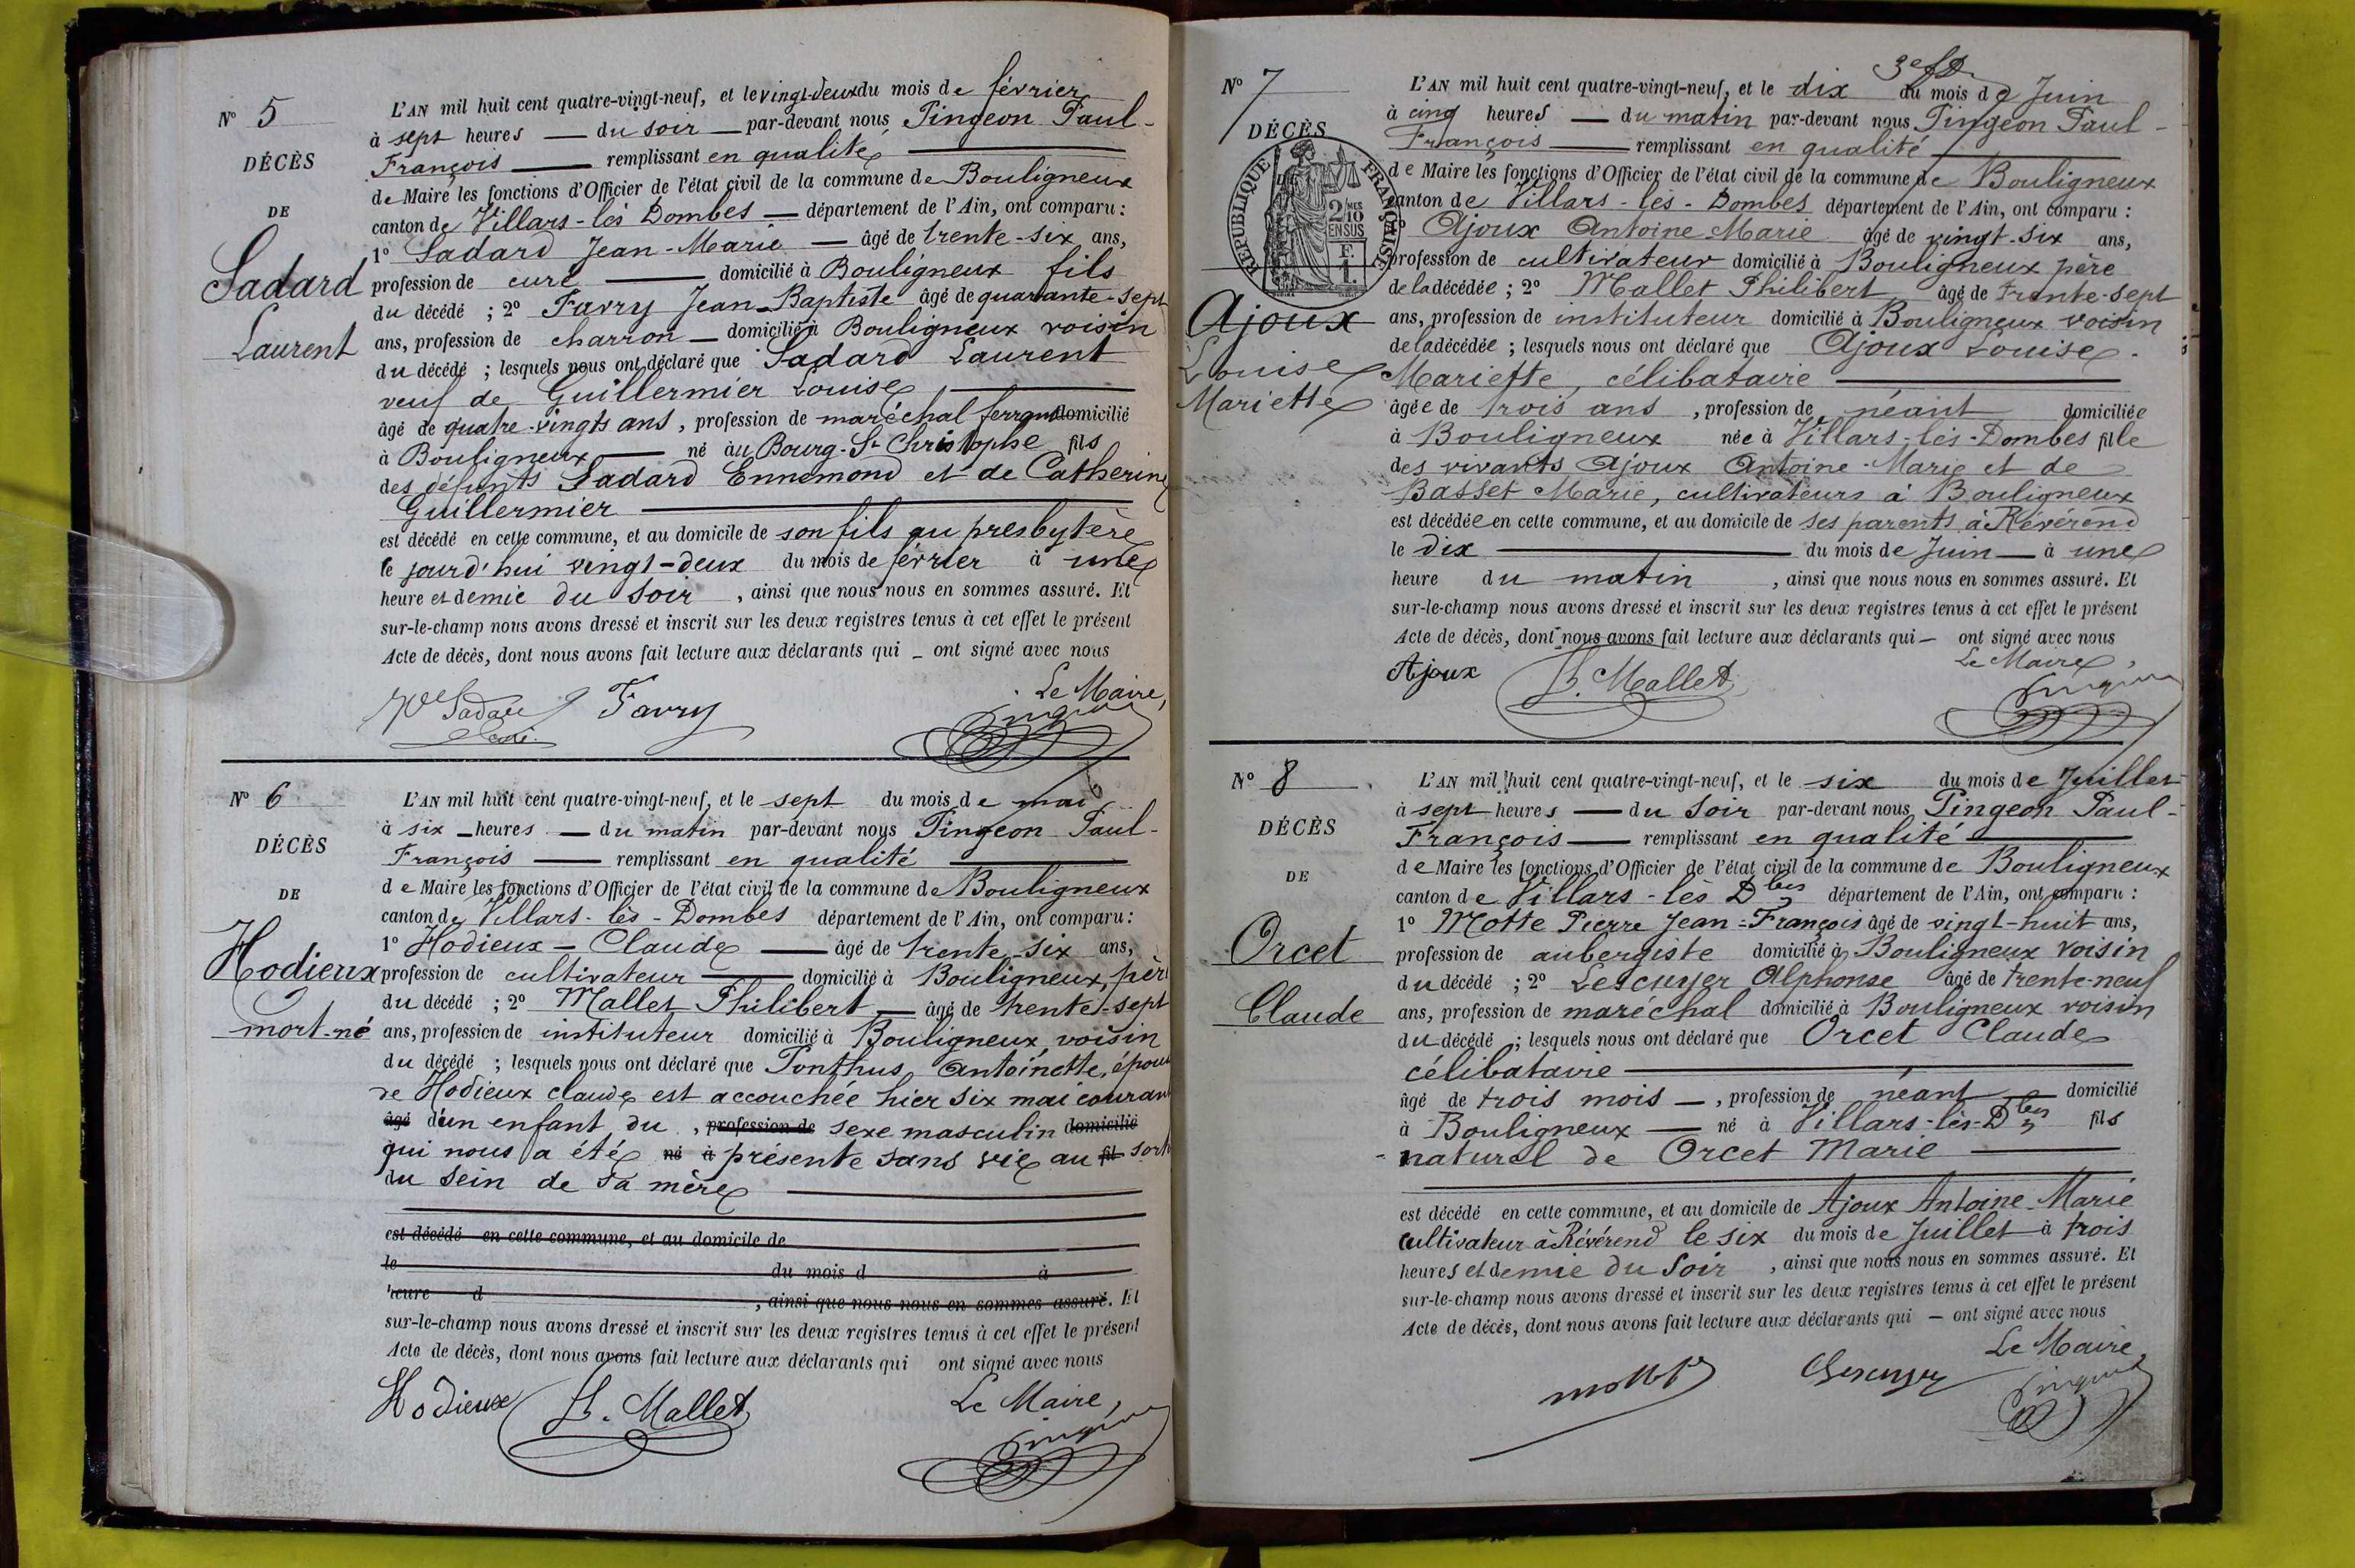 N° 5
DÉCÈS
DE
Sadard
Laurent
L'AN mil huit cent quatre-vingt-neuf, et le vingt-deux du mois de février
à sept heures — du soir — par-devant nous Pingeon Paul-
François — remplissant en qualité
de Maire les fonctions d'Officier de l'état civil de la commune de Bouligneux
canton de Villars-lès Dombes — département de l'Ain, ont comparu :
1° Sadard Jean-Marie — âgé de trente-six ans,
profession de curé — domicilié à Bouligneux fils
du décédé ; 2° Favry Jean-Baptiste âgé de quarante-sept
ans, profession de charron — domicilié à Bouligneux voisin
du décédé ; lesquels nous ont déclaré que Sadard Laurent
veuf de Guillermier Louise
âgé de quatre-vingts ans, profession de maréchal ferrant domicilié
à Bouligneux — né au Bourg-St Christophe fils
des défunts Sadard Ennemond et de Catherine
Guillermier
est décédé en cette commune, et au domicile de son fils au presbytère
le jourd'hui vingt-deux du mois de février à une
heure et demie du soir, ainsi que nous nous en sommes assuré. Et
sur-le-champ nous avons dressé et inscrit sur les deux registres tenus à cet effet le présent
Acte de décès, dont nous avons fait lecture aux déclarants qui — ont signé avec nous
Le Maire,
Sadard Favry Pingeon
curé
N° 6
DÉCÈS
DE
Hodieux
mort-né
L'AN mil huit cent quatre-vingt-neuf, et le sept du mois de mai
à six — heures — du matin par-devant nous Pingeon Paul-
François — remplissant en qualité
de Maire les fonctions d'Officier de l'état civil de la commune de Bouligneux
canton de Villars-lès-Dombes département de l'Ain, ont comparu :
1° Hodieux — Claude — âgé de trente-six ans,
profession de cultivateur — domicilié à Bouligneux, père
du décédé ; 2° Mallet Philibert — âgé de trente-sept
ans, profession de instituteur domicilié à Bouligneux voisin
du décédé ; lesquels nous ont déclaré que Ponthus Antoinette, épouse
de Hodieux claude est accouchée hier six mai courant
âgé d'un enfant du, profession de sexe masculin domicilié
qui nous a été né à présenté sans vie au fil sortir
du sein de sa mère
est décédé en cette commune, et au domicile de
le du mois d à
heure d , ainsi que nous nous en sommes assuré. Et
sur-le-champ nous avons dressé et inscrit sur les deux registres tenus à cet effet le présent
Acte de décès, dont nous avons fait lecture aux déclarants qui ont signé avec nous
Hodieux Ph. Mallet Le Maire,
Pingeon
N° 7
DÉCÈS
RÉPUBLIQUE FRANÇAISE
2 MES
10
EN SUS
F.
1.
Ajoux
Louise
Mariette
L'AN mil huit cent quatre-vingt-neuf, et le dix du mois de Juin
à cinq heures — du matin par-devant nous Pingeon Paul-
François — remplissant en qualité
de Maire les fonctions d'Officier de l'état civil de la commune de Bouligneux
canton de Villars-lès-Dombes département de l'Ain, ont comparu :
Ajoux Antoine-Marie âgé de vingt-six ans,
profession de cultivateur domicilié à Bouligneux père
de la décédée ; 2° Mallet Philibert âgé de trente-sept
ans, profession de instituteur domicilié à Bouligneux voisin
de la décédée ; lesquels nous ont déclaré que Ajoux Louise
Mariette, célibataire
âgée de trois ans, profession de néant domiciliée
à Bouligneux née à Villars-lès-Dombes fille
des vivants Ajoux Antoine-Marie et de
Basset Marie, cultivateurs à Bouligneux
est décédée en cette commune, et au domicile de ses parents à Révérend
le dix — du mois de Juin — à une
heure du matin, ainsi que nous nous en sommes assuré. Et
sur-le-champ nous avons dressé et inscrit sur les deux registres tenus à cet effet le présent
Acte de décès, dont nous avons fait lecture aux déclarants qui — ont signé avec nous
Le Maire,
Ajoux Ph. Mallet Pingeon
N° 8
DÉCÈS
DE
Orcet
Claude
L'AN mil huit cent quatre-vingt-neuf, et le six du mois de Juillet
à sept heures — du soir par-devant nous Pingeon Paul-
François — remplissant en qualité
de Maire les fonctions d'Officier de l'état civil de la commune de Bouligneux
canton de Villars-lès Dbes département de l'Ain, ont comparu :
1° Motte Pierre Jean-François âgé de vingt-huit ans,
profession de aubergiste domicilié à Bouligneux voisin
du décédé ; 2° Lescuyer Alphonse âgé de trente-neuf
ans, profession de maréchal domicilié à Bouligneux voisin
du décédé ; lesquels nous ont déclaré que Orcet Claude
célibataire
âgé de trois mois —, profession de néant — domicilié
à Bouligneux — né à Villars-lès-Dbes fils
naturel de Orcet Marie
est décédé en cette commune, et au domicile de Ajoux Antoine-Marie
cultivateur à Révérend le six du mois de Juillet à trois
heures et demie du soir, ainsi que nous nous en sommes assuré. Et
sur-le-champ nous avons dressé et inscrit sur les deux registres tenus à cet effet le présent
Acte de décès, dont nous avons fait lecture aux déclarants qui — ont signé avec nous
Le Maire,
Lescuyer Pingeon